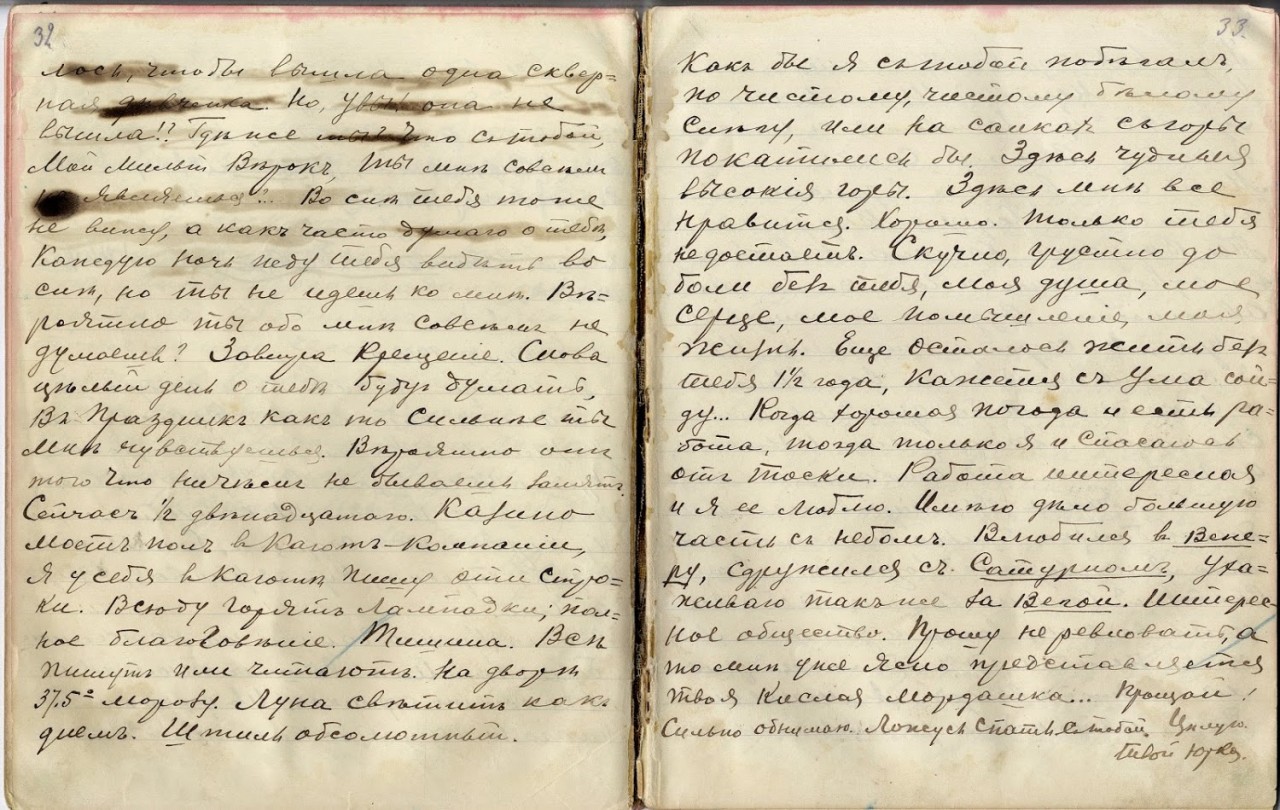 32
лось, чтобы вышла одна сквер=
ная дѣвченка. Но, увы она не
вышла!! Гдѣ же ты? Что съ тобой,
Мой Милый Вѣрокъ, ты мнѣ совсѣмъ
не являешься?.. Во снѣ тебя тоже
не вижу, а какъ часто думаю о тебѣ,
Каждую ночь жду тебя видѣть во
снѣ, но ты не идешь ко мнѣ. Вѣ=
роятно ты обо мнѣ совсѣмъ не
думаешь? Завтра Крещеніе. Снова
цѣлый день о тебѣ буду думать,
Въ Праздникъ какъ то сильнѣе ты
мнѣ чувствуешься. Вѣроятно отъ
того что ничѣмъ не бываешь занятъ.
Сейчасъ ½ двѣнадцатаго. Казино
мостъ полъ въ Каютъ-Компаніи,
я у себя в каютѣ пишу эти стро=
ки. Всюду горятъ Лампадки; пол=
ное благовѣніе. Тишина. Всѣ
пишутъ или читаютъ. На дворѣ
37.5° морозу. Луна свѣтитъ какъ
днемъ. Штиль обсолютный.
33.
Какъ бы я съ тобой побѣгалъ,
по чистому, чистому бѣлому
снѣгу, или на санкахъ съ горы
покатились бы. Здѣсь чудныя
высокія горы. Здѣсь мнѣ все
нравится. Хорошо. Только тебя
недостаетъ. Скучно, грустно до
боли безъ тебя, моя душа, мое
серце, мое помышленіе, моя
жизнь. Еще осталось жить безъ
тебя 1½ года, кажется съ ума сой=
ду... Когда хорошая погода и есть ра=
бота, тогда только я и спасаюсь
отъ тоски. Работа интересная
и я ее люблю. Имѣю дѣло большую
часть съ небомъ. Влюбился в Вене=
ру, сдружился съ Сатурномъ, уха=
живаю также за Вегой. Интерес=
ное общество. Прошу не ревновать, а
то мнѣ уже ясно представляется
твоя кислая мордашка... Прощай!
Сильно обнимаю. Ложусь спать съ тобой. Цѣлую.
твой Юрка.